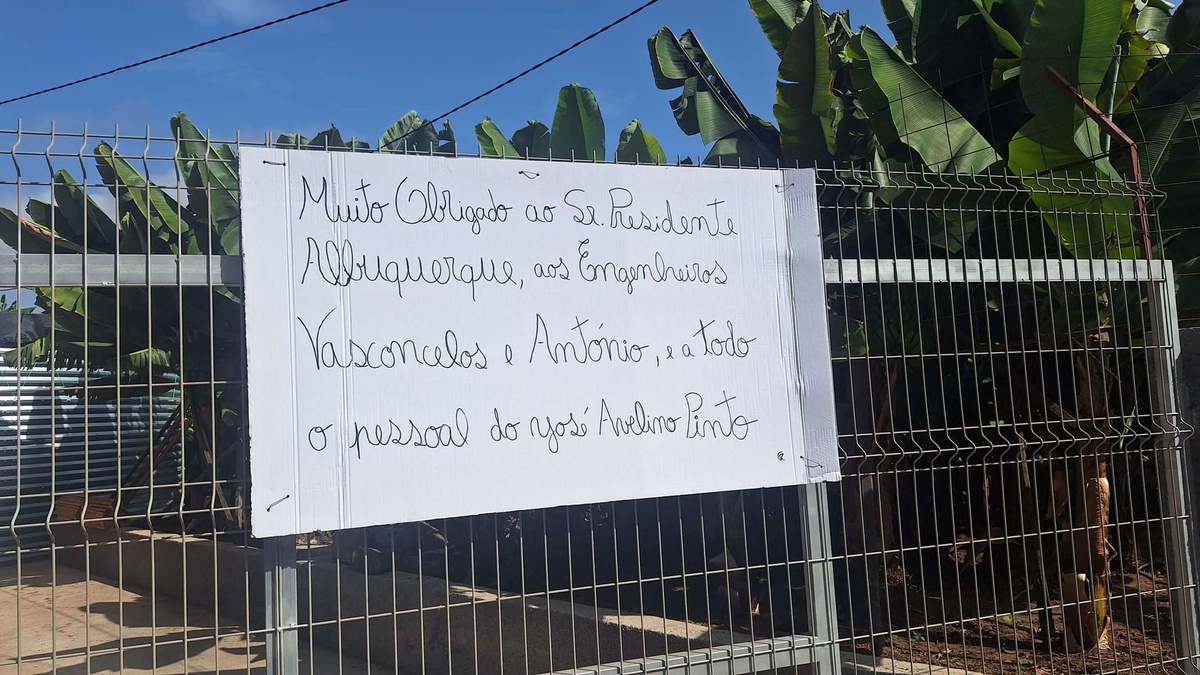 Muito Obrigado ao Sr. Presidente
Albuquerque, aos Engenheiros
Vasconcelos e António, e a todo
o pessoal do José Avelino Pinto